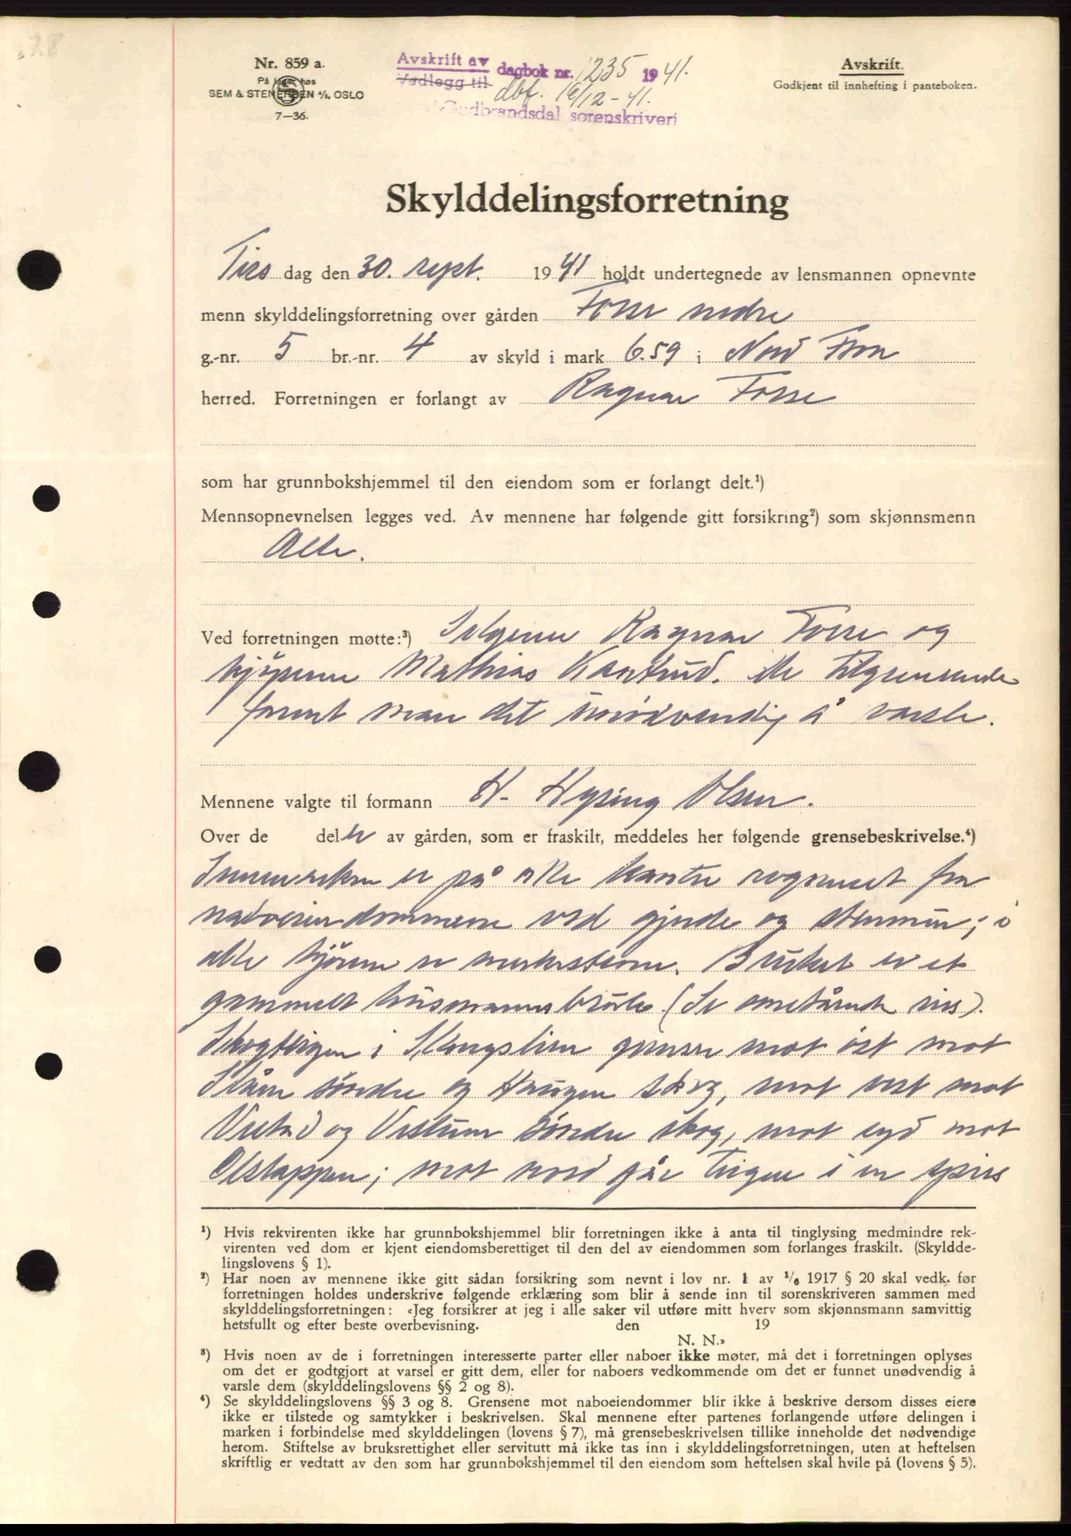 Nr. 859 a.
På lager hos
SEM & STENERSEN A/S, OSLO
7—36.
Avskrift av
Vedlegg til dagbok nr. 1235 1941.
dbf. 16/12-41.
Gudbrandsdal sorenskriveri
Avskrift.
Godkjent til innhefting i panteboken.
Skylddelingsforretning
Tirsdag den 30. sept. 1941 holdt undertegnede av lensmannen opnevnte
menn skylddelingsforretning over gården Fosse nedre
g.-nr. 5 br.-nr. 4 av skyld i mark 6.59 i Nord Fron
herred. Forretningen er forlangt av Ragnar Fosse
som har grunnbokshjemmel til den eiendom som er forlangt delt.¹)
Mennsopnevnelsen legges ved. Av mennene har følgende gitt forsikring²) som skjønnsmenn
Alle.
Ved forretningen møtte:³) Selgeren Ragnar Fosse og
kjøperen Mathias Kantrud. De tilgrensende
fannt man det unødvendig å varsle.
Mennene valgte til formann H. Hysing Olsen.
Over de deler av gården, som er fraskilt, meddeles her følgende grensebeskrivelse.⁴)
Innmarken er på alle kanter avgrenset fra
naboeiendommene ved gjerde og stenmur; i
alle hjørner er merkestene. Bruket er et
gammelt husmannsbruk (Se omstående riss).
Skogteigen i Skongslien grenser mot øst mot
søndre og Haugen skog, mot vest mot
og søndre skog, mot syd mot
Olstappen; mot nord går teigen i en spiss
¹) Hvis rekvirenten ikke har grunnbokshjemmel blir forretningen ikke å anta til tinglysing medmindre rek-
virenten ved dom er kjent eiendomsberettiget til den del av eiendommen som forlanges fraskilt. (Skyldde-
lingslovens § 1).
²) Har noen av mennene ikke gitt sådan forsikring som nevnt i lov nr. 1 av 1/6 1917 § 20 skal vedk. før
forretningen holdes underskrive følgende erklæring som blir å sende inn til sorenskriveren sammen med
skylddelingsforretningen: «Jeg forsikrer at jeg i alle saker vil utføre mitt hverv som skjønnsmann samvittig
hetsfullt og efter beste overbevisning. den 19
N. N.»
³) Hvis noen av de i forretningen interesserte parter eller naboer ikke møter, må det i forretningen oplyses
om det er godtgjort at varsel er gitt dem, eller for naboers vedkommende om det er funnet unødvendig å
varsle dem (skylddelingslovens §§ 2 og 8).
⁴) Se skylddelingslovens §§ 3 og 8. Grensene mot naboeiendommer blir ikke å beskrive dersom disses eiere
ikke er tilstede og samtykker i beskrivelsen. Skal mennene efter partenes forlangende utføre delingen i
marken i forbindelse med skylddelingen (lovens § 7), må grensebeskrivelsen tillike inneholde det nødvendige
herom. Stiftelse av bruksrettighet eller servitutt må ikke tas inn i skylddelingsforretningen, uten at heftelsen
skriftlig er vedtatt av den som har grunnbokshjemmel til den eiendom som heftelsen skal hvile på (lovens § 5).